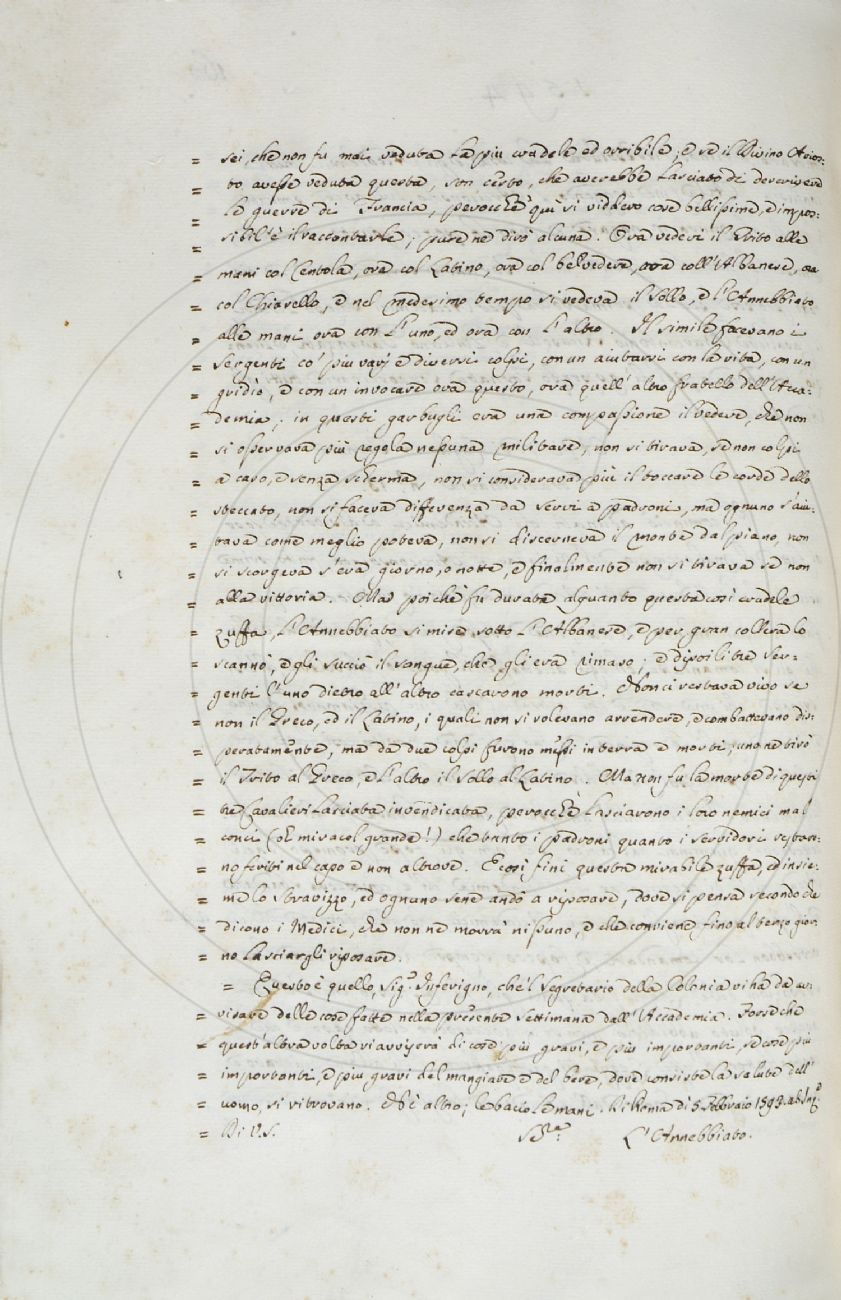 = sei, che non fu mai veduta la piu crudele ed orribile, e se il Divino Arios=
= to avesse veduta questa, son certo, che averebbe lasciato di descrivere
= le guerre di Francia, perocchè quì si viddero cose bellissime, e impos=
= sibil'è il raccontarle; pure ne dirò alcuna. Ora vedevi il Trito alle
= mani col Centola, ora col Latino, ora col belvedere, ora coll'Albanese, ora
= col Chiarello, e nel medesimo tempo si vedeva il Sollo, e l'Annebbiato
= alle mani ora con l'uno, ed ora con l'altro. Il simile facevano i
= sergenti co' piu varj e diversi colpi, con un aiutarsi con la vita, con un
= gridìo, e con un invocare ora questo, ora quell'altro fratello dell'Acca=
= demia; in questi garbugli era una compassione il vedere, che non
= si osservava più regola nessuna militare, non si tirava, se non colpi
= a caso, e senza scherma, non si considerava più il toccare le corde dello
= steccato, non si faceva differenza da servi a padroni, ma ognuno s'aiu=
= tava come meglio poteva, non si discerneva il monte dal piano, non
= si scorgeva s'era giorno, o notte, e finalmente non si tirava se non
= alla vittoria. Ma poichè fu durata alquanto questa così crudele
= zuffa, l'Annebbiato si mise sotto l'Albanese, e per gran collera lo
= scannò, e gli succiò il sangue, che gli era rimaso; e di poi li tre Ser=
= genti l'uno dietro all'altro cascarono morti. Non ci restava vivo se
= non il Greco, ed il Latino, i quali non si volevano arrendere, e combattevano dis=
= peratamente, ma da due colpi furono messi in terra e morti; uno ne tirò
= il Trito al Greco, e l'altro il Sollo al Latino. Ma non fu la morte di questi
= tre Cavalieri lasciata invendicata, perocchè lasciarono i loro nemici mal
= conci (oh miracol grande!) che tanto i padroni quanto i servidori restaro=
= no feriti nel capo e non altrove. E così finì questa mirabile zuffa, ed insie=
= me lo stravizzo, ed ognuno sene andò a riposare, dove si pensa secondo che
= dicono i Medici, che non ne morrà nissuno, e che conviene fino al terzo gior=
= no lasciargli riposare.
= Questo è quello, Sig.r Inferigno, che 'l Segretario della Colonia vi ha da av=
= visare delle cose fatte nella presente Settimana dall'Accademia. Forse che
= quest'altra volta vi avviserà di cose più gravi, e più importanti, se cose più
= importanti, e più gravi del mangiare e del bere, dove consiste la salute dell'
= uomo, si ritrovano. Nè altro; le bacio le mani. Di Roma dì 5 Febbraio 1593.
= Di V.S. L'Annebbiato.